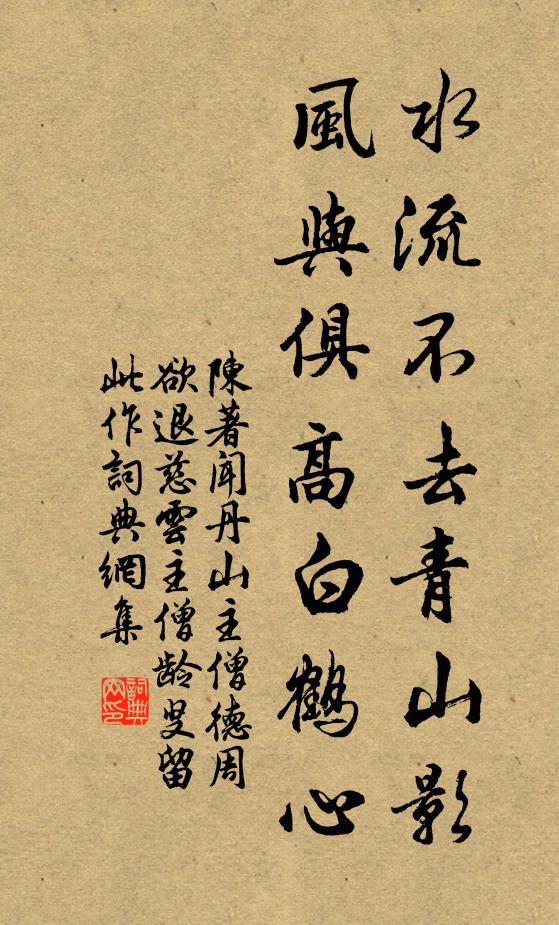 水流不去青山影
風與俱高白鶴心
陳著聞丹山主僧德周
欲退慈雲主僧龄叟留
此作詞典網集
詞典
网印